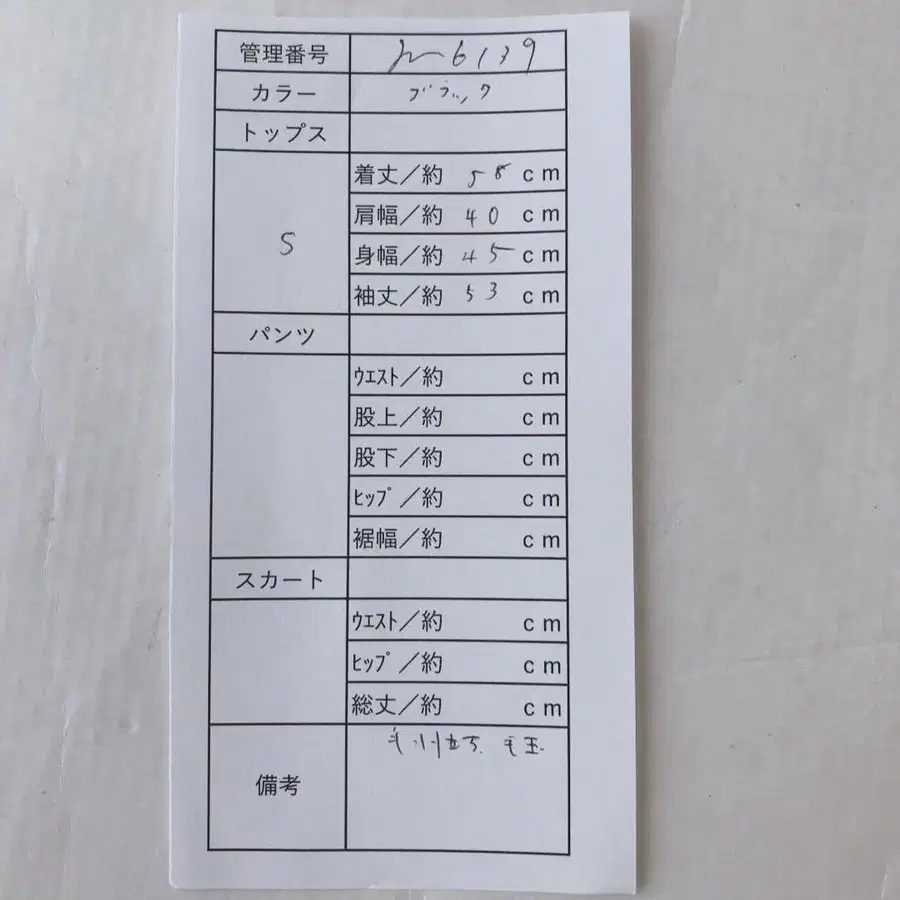 管理番号 m6139
カラー ブラック
トップス
S
着丈／約 58 cm
肩幅／約 40 cm
身幅／約 45 cm
袖丈／約 53 cm
パンツ
ｳｴｽﾄ／約 cm
股上／約 cm
股下／約 cm
ﾋｯﾌﾟ／約 cm
裾幅／約 cm
スカート
ｳｴｽﾄ／約 cm
ﾋｯﾌﾟ／約 cm
総丈／約 cm
備考 毛羽立ち、毛玉